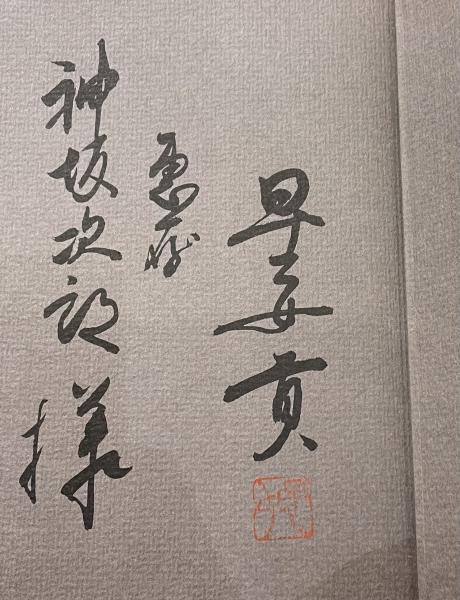 早乙女貢
恵存
神坂次郎様